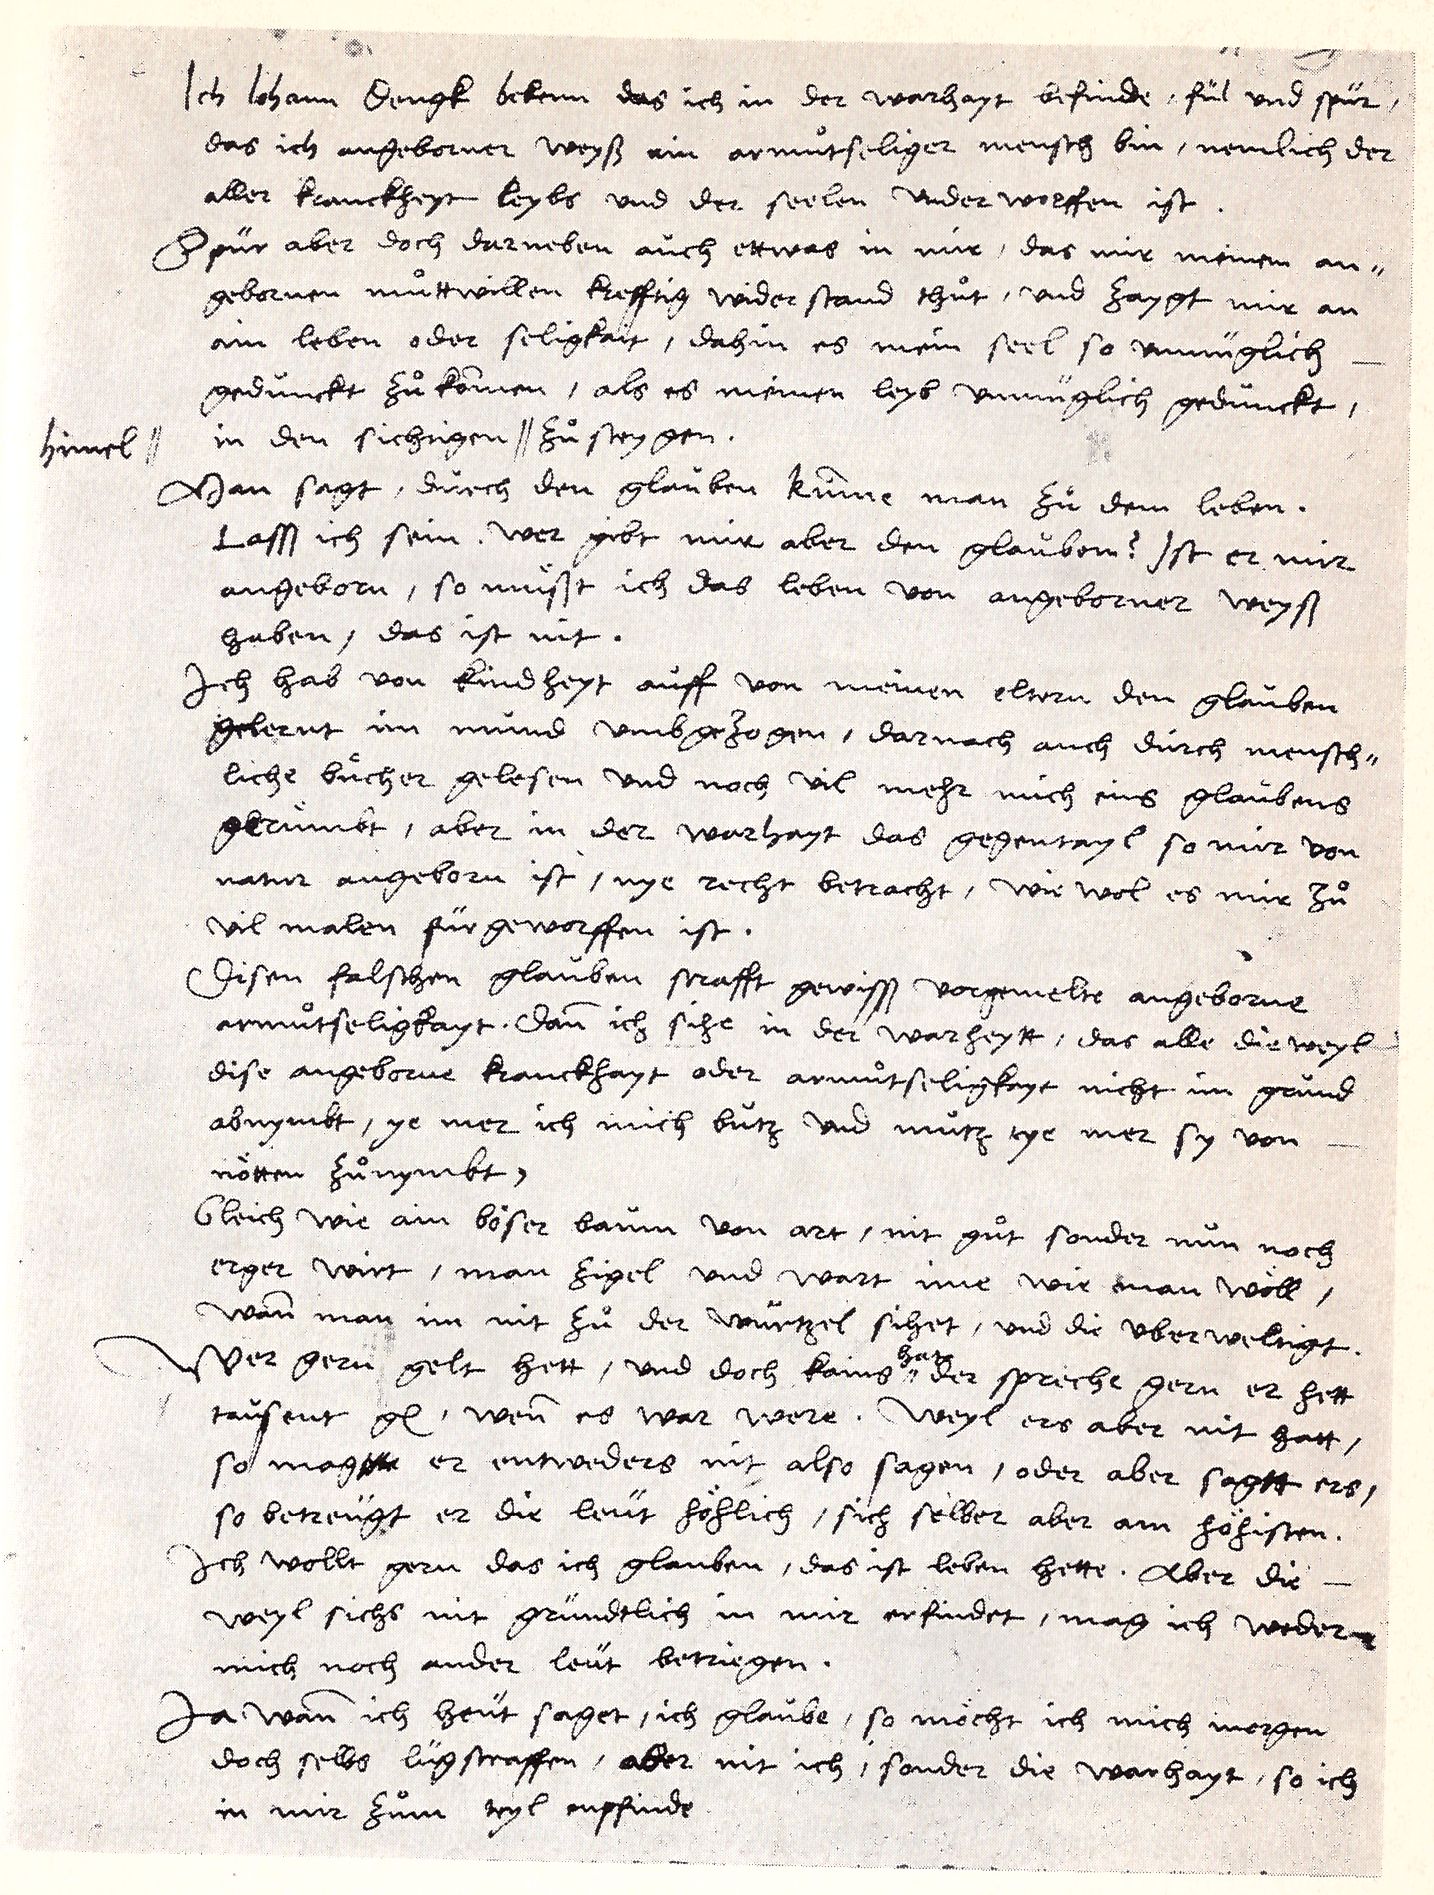 Ich Johann Dengk bekenn das ich in der warhayt befinde, fül und spür,
das ich angeborner weyß ain armůtseliger mensch bin, nemlich der
aller kranckheyt leybs und der seelen underworffen ist.
Spür aber doch darneben auch ettwas in mir, das mir meinem an„
gebornen můttwillen krefftig widerstand thůt, und zaygt mir an
ain leben oder seligkait, dahin es mein seel so unmüglich —
gedunckt zů kom̄en, als es meinen leyb unmüglich gedunckt,
himel // in den sichtigen // zů steygen.
Man sagt, durch den glauben kum̄e man zů dem leben.
Lasss ich sein. wer gibt mir aber den glauben? Ist er mir
angeborn, so müßt ich das leben von angeborner weyß
haben, das ist nit.
Ich hab von kindheyt auff von meinen eltern den glauben
gelernt im mund umbgezogen, darnach auch durch mensch„
liche bücher gelesen und noch vil mehr mich eins glaubens
gerümbt, aber in der warhayt das gegentayl so mir von
natur angeborn ist, nye recht betracht, wiewol es mir zů
vil malen fürgeworffen ist.
Disen falschen glauben strafft gewisss vorgemelte angeborne
armůtseligkayt. Dan̄ ich sihe in der warheytt, das alle dieweyl
dise angeborne kranckhayt oder armůtseligkayt nicht im grund
abnymbt, ye mer ich mich butz und mutz ye mer sy von —
nötten zůnymbt,
Gleich wie ain böser baum von art, nit gůt sonder nun noch
erger wirt, man zigel und wart ime wie man wöll,
wan̄ man im nit zů der wurtzel sihet, und die uberweltigt.
Wer gern gelt hett, und doch kains hat der spreche gern er hett
tausent gl, wen̄ es war were. Weyl ers aber nit hatt,
so mag er entweders nit also sagen, oder aber sagtt ers,
so betreugt er die leüt höhlich, sich selber aber am höhisten.
Ich wollt gern das ich glauben, das ist leben hette. Aber die —
weyl sichs nit gründtlich in mir erfindet, mag ich weder
mich noch ander leüt betriegen.
Ja wan̄ ich heüt saget, ich glaube, so möcht ich mich morgen
doch selbs lügstraffen, aber nit ich, sonder die warhayt, so ich
in mir zům teyl enpfinde